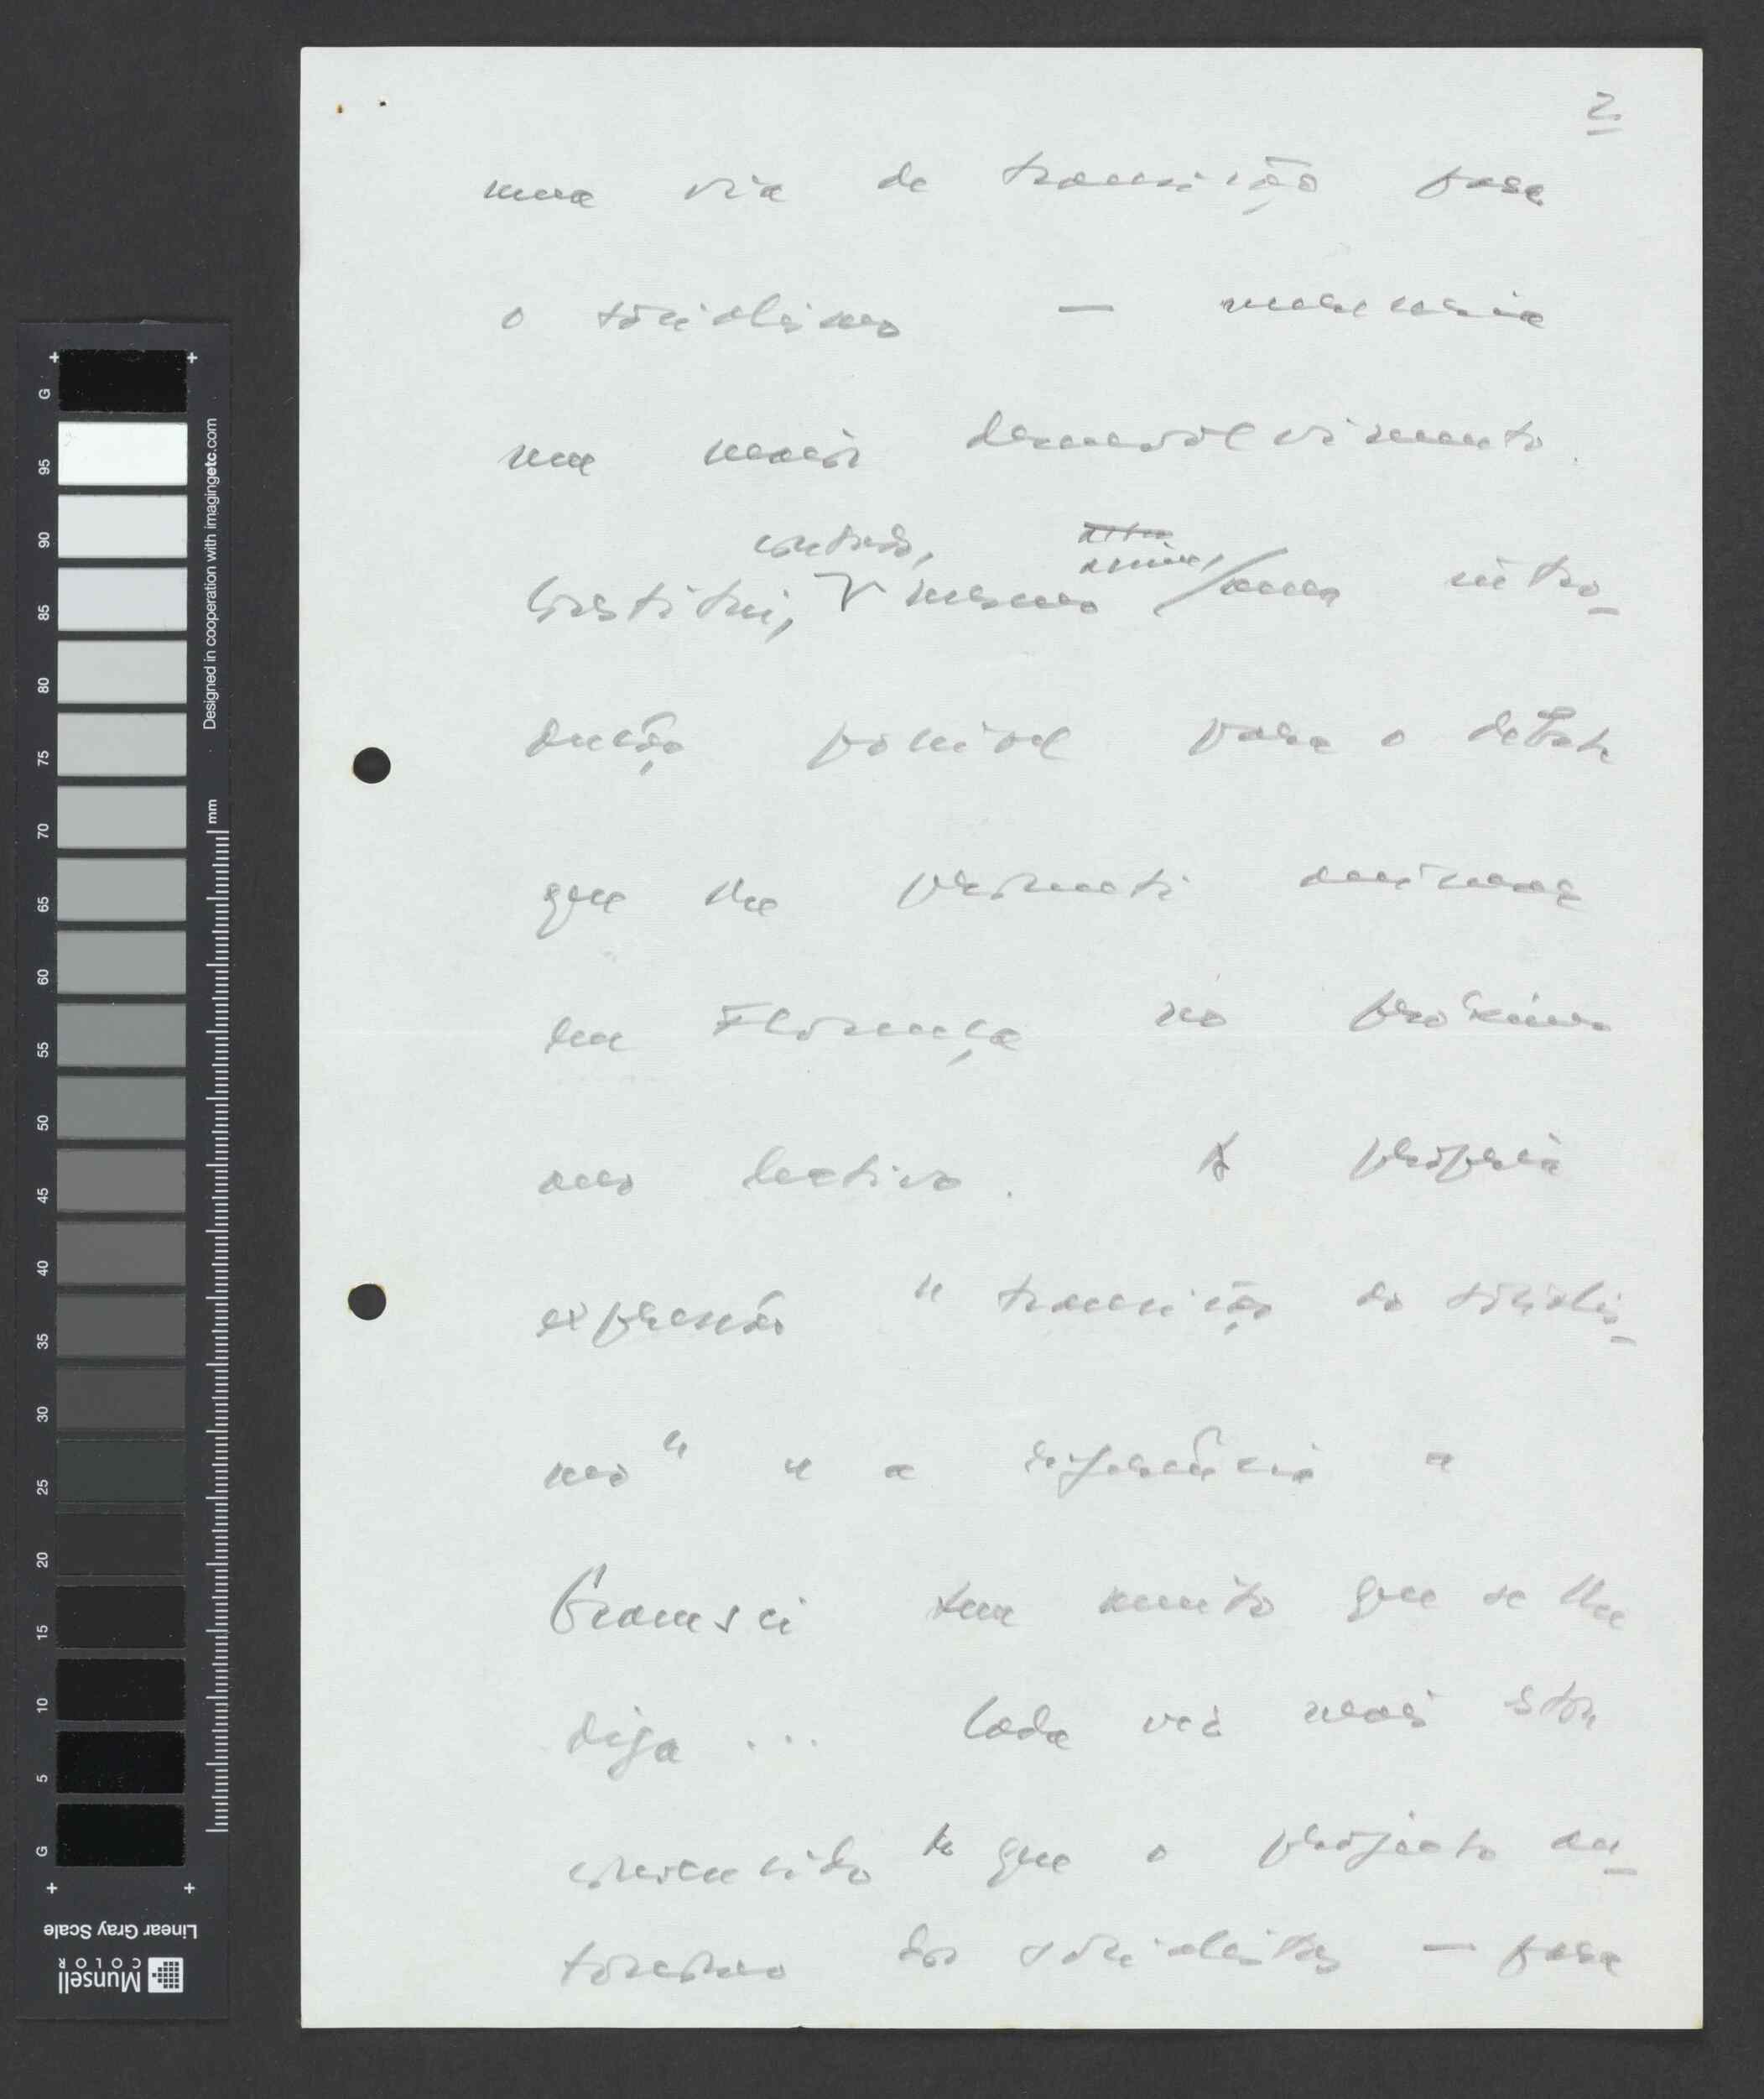 2.
uma via de transição para
o socialismo — mereceria
um maior desenvolvimento.
contudo, assim,
Constitui, mesmo uma intro-
dução possível para o debate
que me prometi animar
em Florença no próximo
ano lectivo. A própria
expressão "transição ao socialis-
mo" e a referência a
Gramsci tem muito que se lhe
diga ... Cada vez mais estou
convencido de que o projecto au-
tónomo dos socialistas — para
G 95 90 85 80 75 70 65 60 55 50 45 40 35 30 25 20 15 10 5 G
Designed in cooperation with imagingetc.com
mm
Linear Gray Scale
Munsell
COLOR